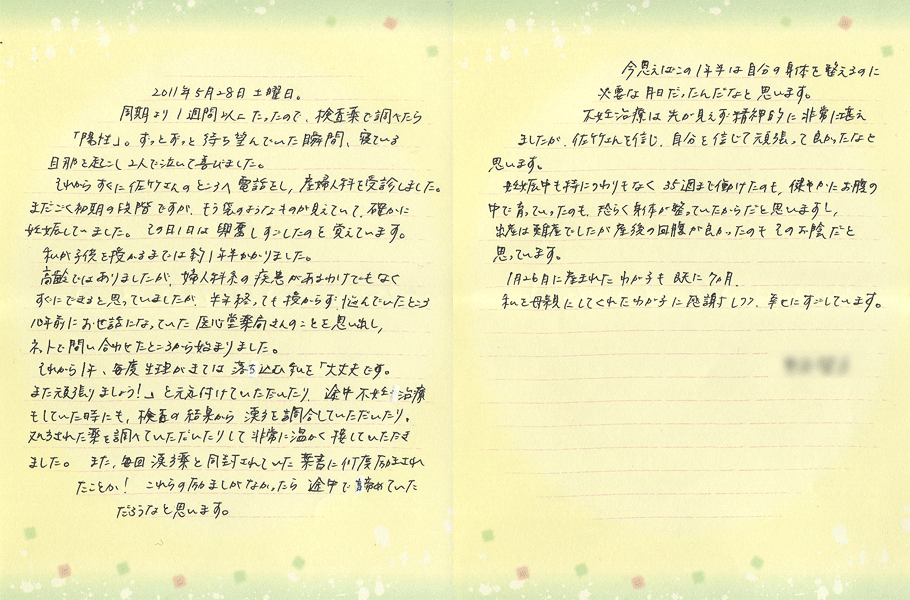 2011年5月28日 土曜日。
周期より1週間以上たったので、検査薬で調べたら
「陽性」。ずっとずっと待ち望んでいた瞬間、寝ている
旦那を起こし2人で泣いて喜びました。
それからすぐに佐竹さんのところへ電話をし、産婦人科を受診しました。
まだごく初期の段階ですが、もう袋のようなものが見えていて、確かに
妊娠していました。その日1日は興奮しすごしたのを覚えています。
私が子供を授かるまでは約1年半かかりました。
高齢ではありましたが、婦人科系の疾患があるわけでもなく
すぐにできると思っていましたが、半年経っても授からず悩んでいたところ
10年前にお世話になっていた医心堂薬局さんのことを思い出し、
ネットで問い合わせたところから始まりました。
それから1年、毎度生理がきては落ち込む私を「大丈夫です。
また頑張りましょう!」と元気付けていただいたり、途中不妊治療
をしていた時にも、検査の結果から漢方を調合していただいたり、
処方された薬を調べていただいたりして非常に温かく接していただき
ました。また、毎回漢方薬と同封されていた葉書に何度励まされ
たことか! これらの励ましがなかったら途中で諦めていた
だろうなと思います。
今思えばこの1年半は自分の身体を整えるのに
必要な月日だったんだなと思います。
不妊治療は先が見えず精神的に非常に堪え
ましたが、佐竹さんを信じ、自分を信じて頑張って良かったなと
思います。
妊娠中も特につわりもなく35週まで働けたのも、健やかにお腹の
中で育っていったのも、恐らく身体が整っていたからだと思いますし、
出産は難産でしたが産後の回腹が良かったのもそのお陰だと
思っています。
1月26日に産まれたわが子も既に7ヵ月。
私を母親にしてくれたわが子に感謝しつつ、幸せにすごしています。